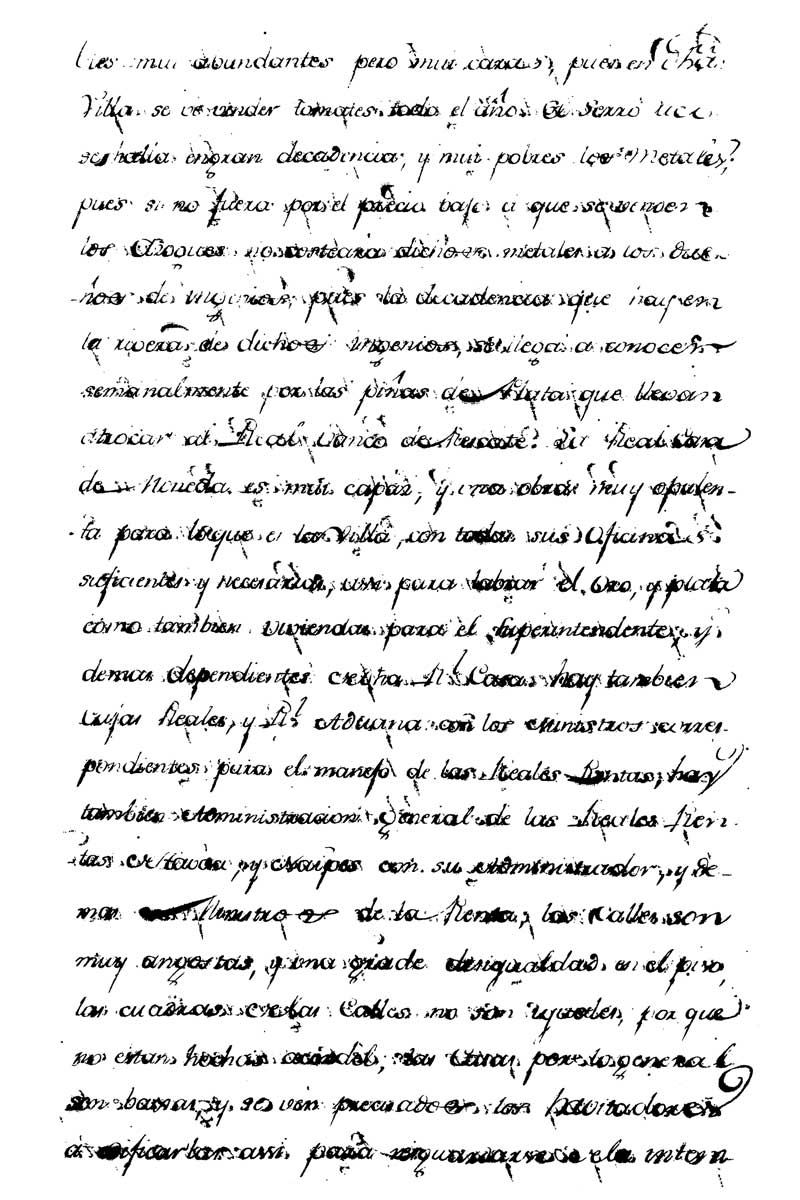 les mui abundantes pero mui caras, pues en dha
Villa se ve vender tomates todo el año. El Serro
se halla en gran decadencia, y mui pobres los Metales,
pues si no fuera por el precio bajo a que se venden
los Azogues no costearia dichos metales a los due-
ños de Ingenios, pues la decadencia que hay en
la rivera de dichos ingenios, se llega a conocer
semanalmente por las piñas de Plata que llevan
atrocar al Real Banco de Rescate. La Real Casa
de Moneda es mui capaz, y una obra muy opulen-
ta para lo que es la Villa, con todas sus Oficinas
suficientes y necesarias, assi para labrar el Oro, y plata
como tambien viviendas para el Superintendente, y
demas dependientes de dha Rl. Casa. hay tambien
Cajas Reales, y Rl. Aduana con los Ministros corres-
pondientes para el manejo de las Reales Rentas, hay
tambien Administracion General de las Reales Ren-
tas de Tavaco, y Naipes con su Administrador, y de-
mas Ministros de la Renta, las Calles son
muy angostas, y una grãde desigualdad en el piso,
las cuadras de las Calles no son yguales, por que
no estan hechas a cordel, las Casas por lo general
son baxas y se ven precisados los havitadores
á edificarlas assi para resguardarse de la intem